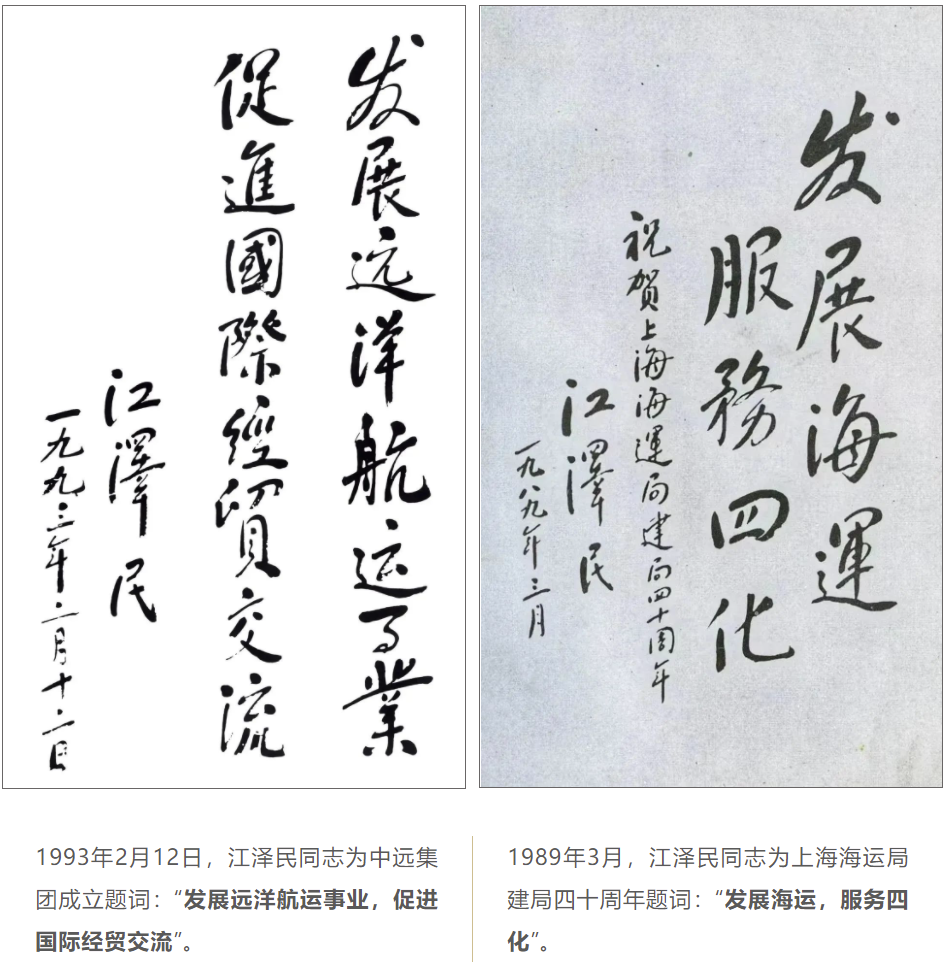 发展远洋航运事业
促進國際經貿交流
江澤民
一九九三年二月十二日
发展海運
服務四化
祝賀上海海運局建局四十周年
江澤民
一九八九年三月
1993年2月12日，江泽民同志为中远集
团成立题词：“发展远洋航运事业，促进
国际经贸交流”。
1989年3月，江泽民同志为上海海运局
建局四十周年题词：“发展海运，服务四
化”。